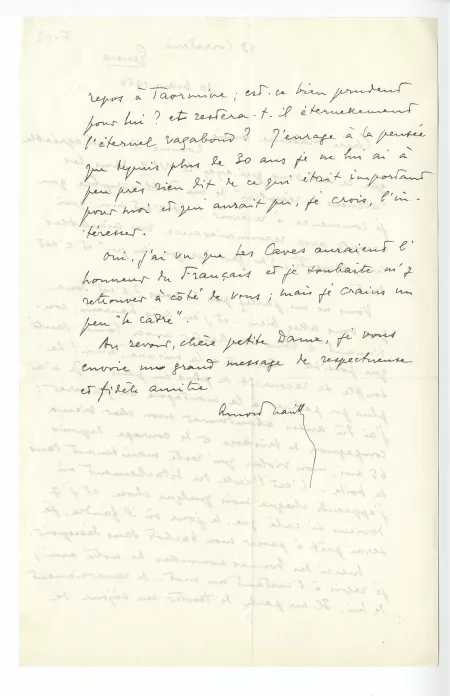 repos à Taormine ; est-ce bien prudent
pour lui ? et restera-t-il éternellement
l'éternel vagabond ? J'enrage à la pensée
que depuis plus de 30 ans je ne lui ai à
peu près rien dit de ce qui était important
pour moi et qui aurait pu, je crois, l'in-
téresser.
Oui, j'ai vu que les Caves auraient l'
honneur du Français et je souhaite m'y
retrouver à côté de vous ; mais je crains un
peu "le cadre".
Au revoir, chère petite Dame, je vous
envoie un grand message de respectueuse
et fidèle amitié
Arnold Naville